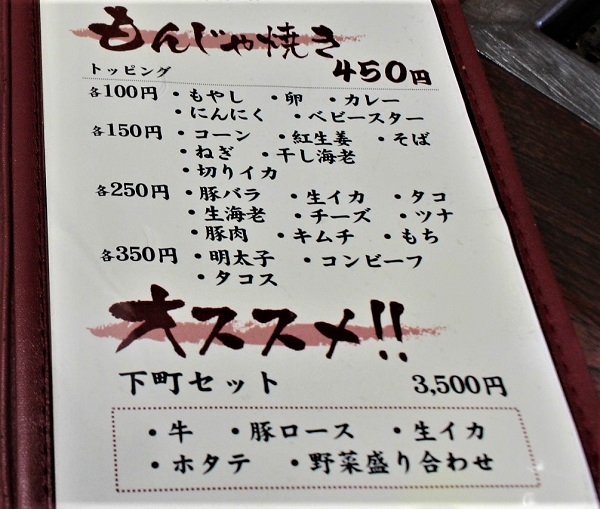 もんじゃ焼き
トッピング 450円
各100円 ・もやし ・卵 ・カレー
・にんにく ・ベビースター
各150円 ・コーン ・紅生姜 ・そば
・ねぎ ・干し海老
・切りイカ
各250円 ・豚バラ ・生イカ ・タコ
・生海老 ・チーズ ・ツナ
・豚肉 ・キムチ ・もち
各350円 ・明太子 ・コンビーフ
・タコス
オススメ!!
下町セット 3,500円
・牛 ・豚ロース ・生イカ
・ホタテ ・野菜盛り合わせ